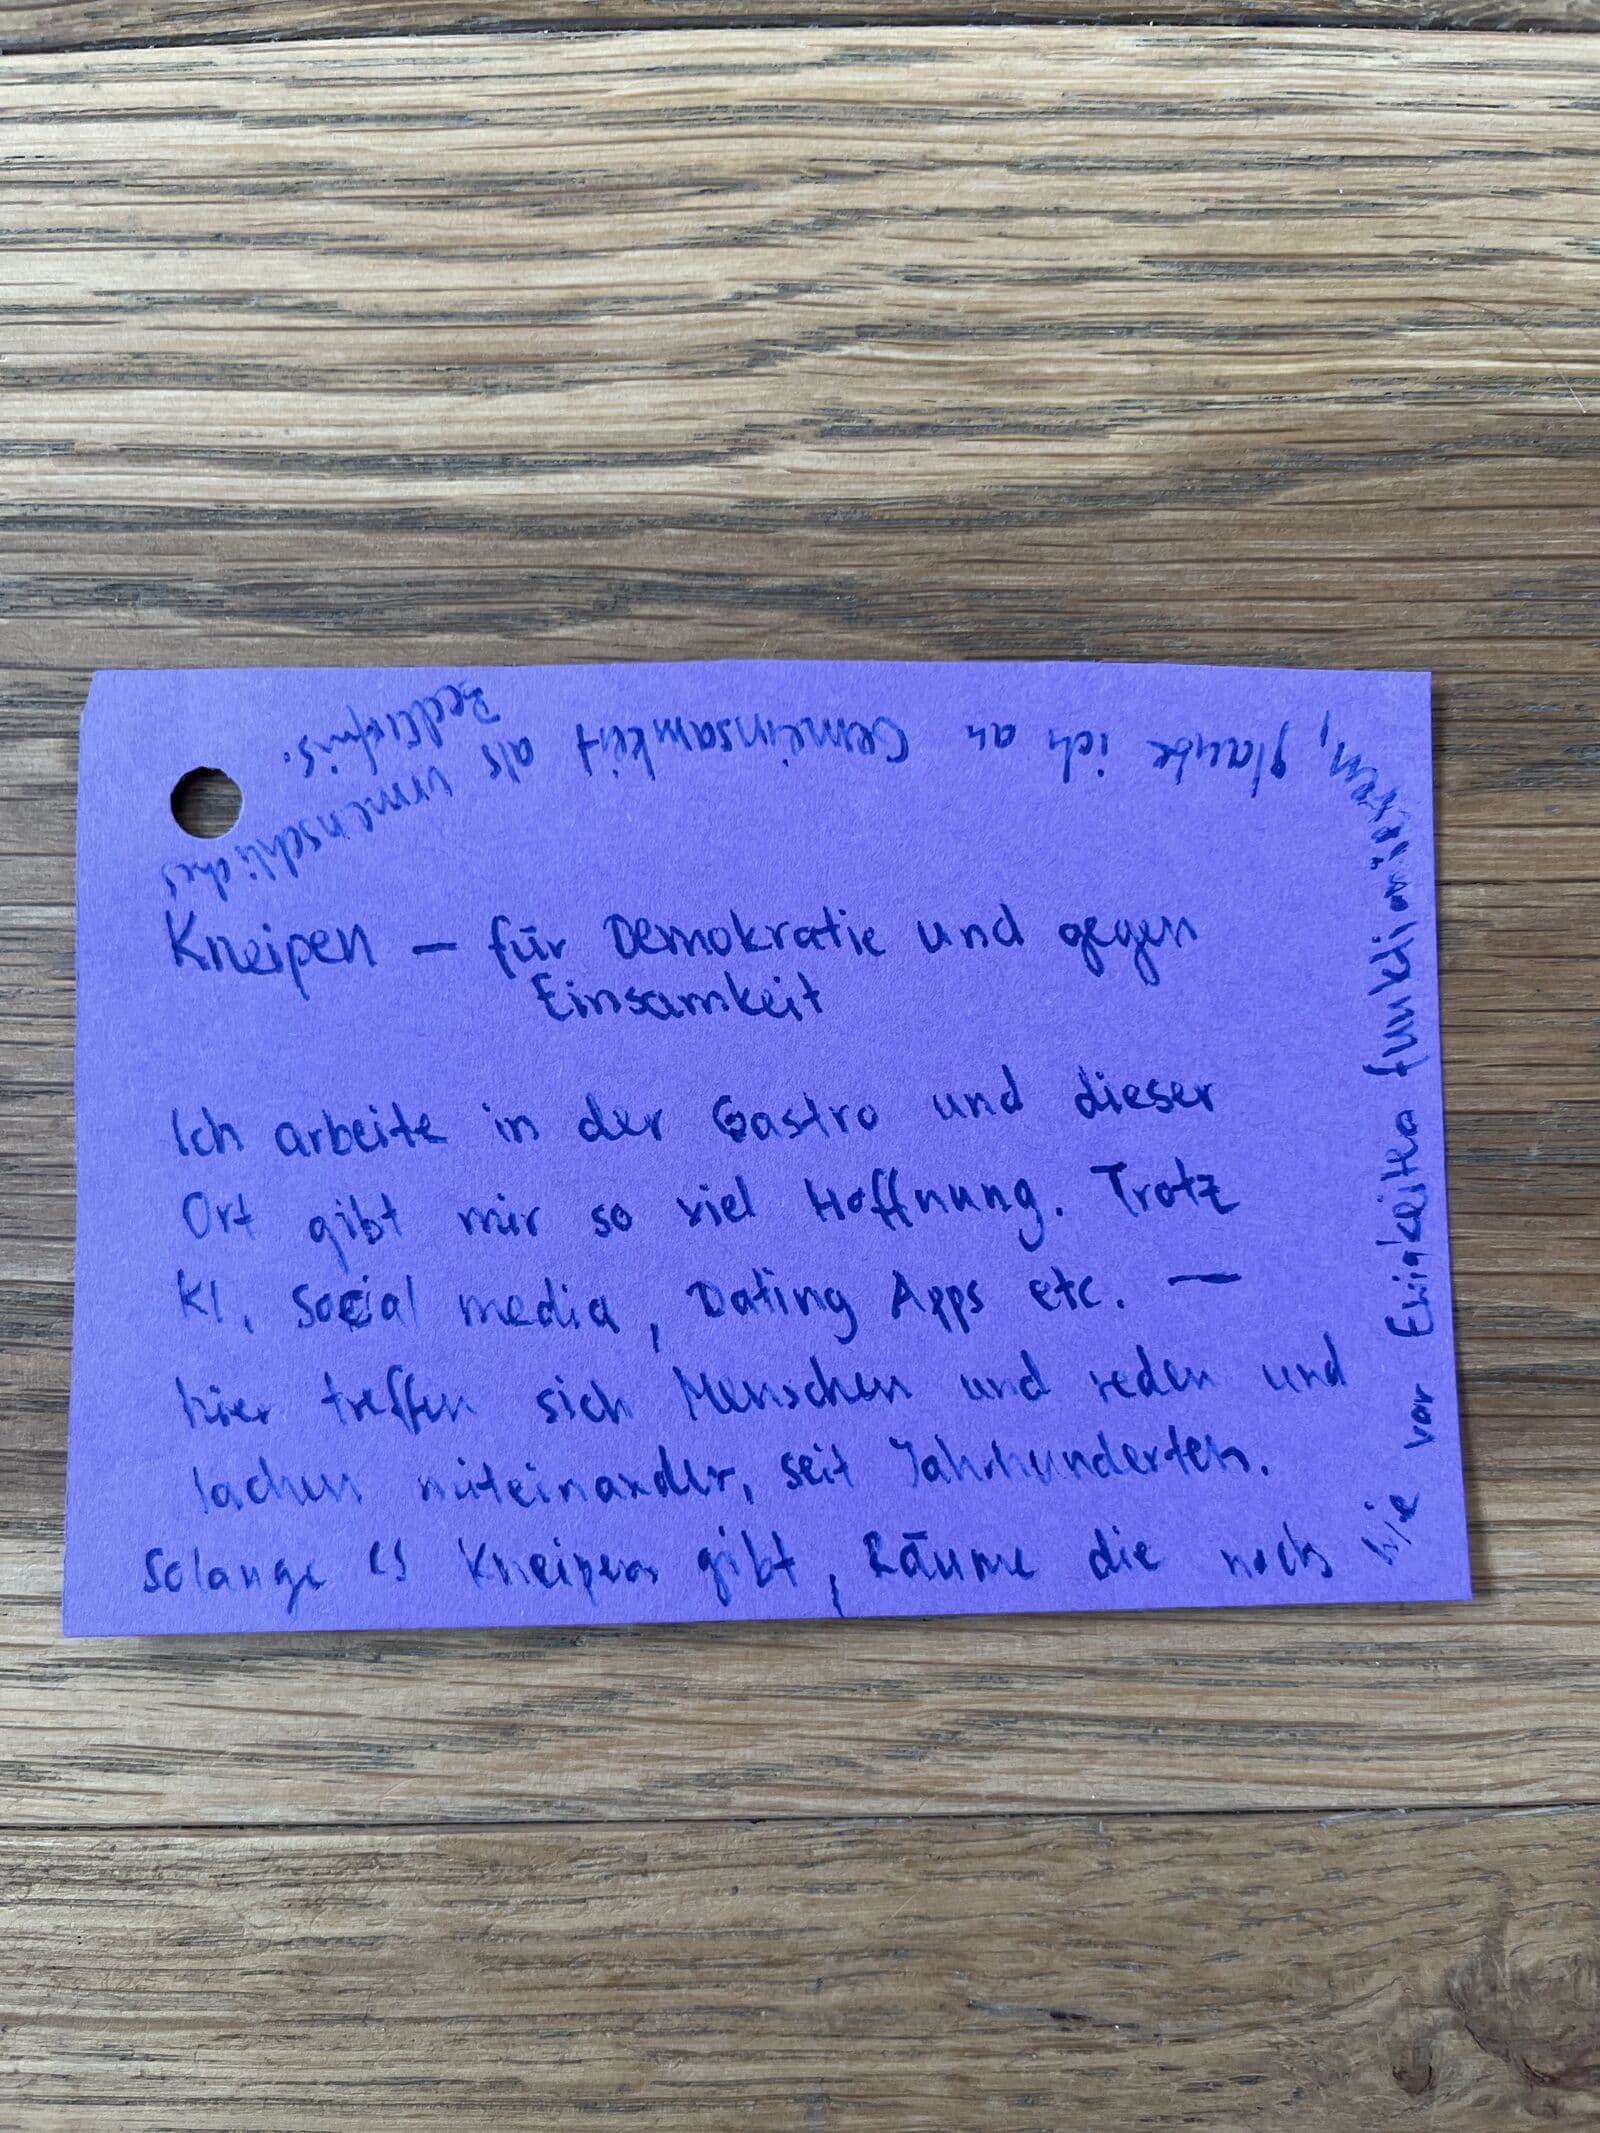 Kneipen – für Demokratie und gegen
Einsamkeit
Ich arbeite in der Gastro und dieser
Ort gibt mir so viel Hoffnung. Trotz
KI, Social media, Dating Apps etc. —
hier treffen sich Menschen und reden und
lachen miteinander, seit Jahrhunderten.
Solange es Kneipen gibt, Räume die noch
wie vor Ewigkeiten funktionieren,
glaube ich an Gemeinsamkeit als urmenschliches
Bedürfnis.